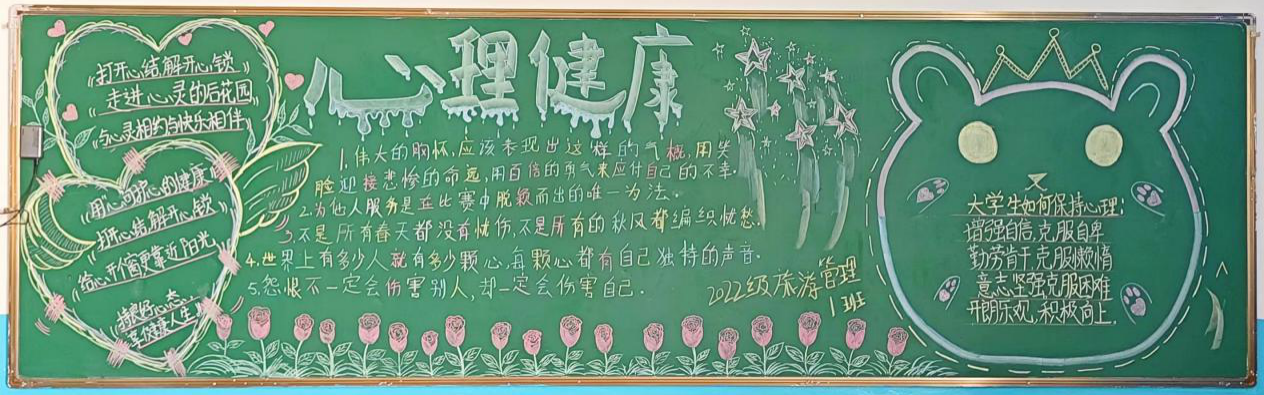 打开心结解开心锁
走进心灵的后花园
与心灵相约与快乐相伴
用心呵护心的健康
打开心结解开心锁
给心开个窗更靠近阳光
持良好心态
享健康人生
心理健康
1.伟大的胸怀,应该表现出这样的气概,用笑
脸迎接悲惨的命运,用百倍的勇气来应付自己的不幸.
2.为他人服务是在比赛中脱颖而出的唯一为法.
3.不是所有春天都没有忧伤,不是所有的秋风都编织忧愁.
4.世界上有多少人就有多少颗心,每颗心都有自己独特的声音.
5.怨恨不一定会伤害别人,却一定会伤害自己.
2022级旅游管理
1班
大学生如何保持心理:
增强自信,克服自卑
勤劳肯干克服懒惰
意志坚强克服困难
开朗乐观,积极向上.